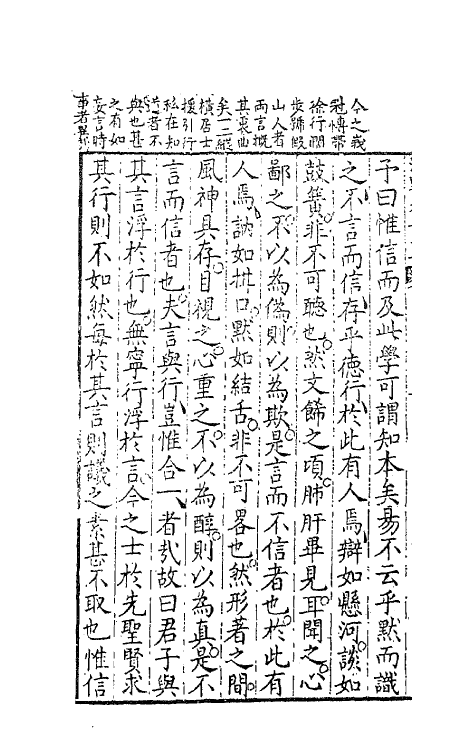 今之峩
冠博帶
徐行闊
步號假
山人者
而言槪
其衷曲
矣一二縱
橫居士
援引行
私在知
與也甚
之有如
妄言時
事者
予曰惟信而及此學可謂知本矣易不云乎默而識
之不言而信存乎德行於此有人焉辯如懸河談如
鼓簧非不可聽也然文餙之頃肺肝畢見耳聞之心
鄙之不以為僞則以為欺是言而不信者也於此有
人焉訥如拱口默如結舌非不可畧也然形著之間
風神具存目視之心重之不以為醇則以為真是不
言而信者也夫言與行豈惟合一者㢤故曰君子與
其言浮於行也無寧行浮於言今之士於先聖賢求
其行則不如然每於其言則議之素甚不取也惟信